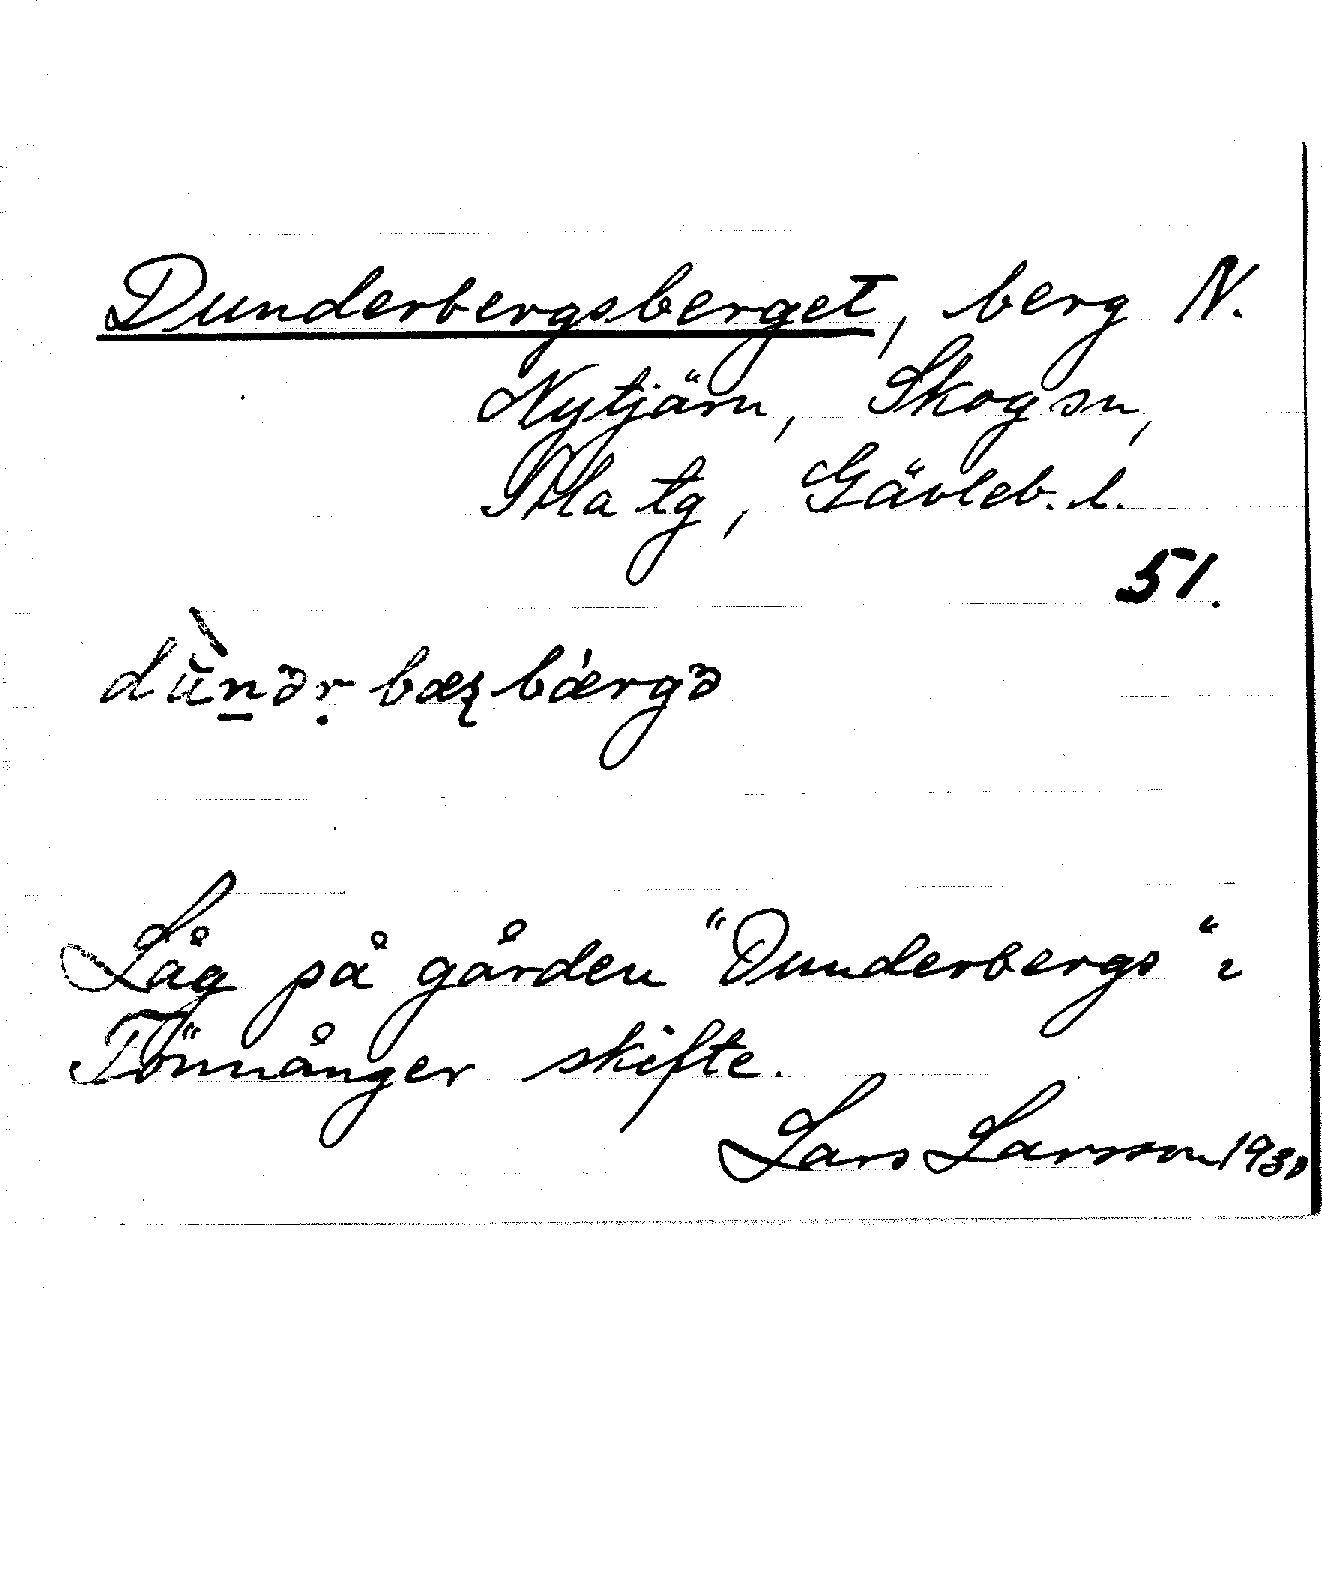 Dunderbergsberget, berg N.
Nytjärn, Skog sn,
Ala tg, Gävleb. l.
51.
dùnər bæʂbǽrgə
Låg på gården "Dunderbergs" i
Tönnånger skifte.
Lars Larsson 1930